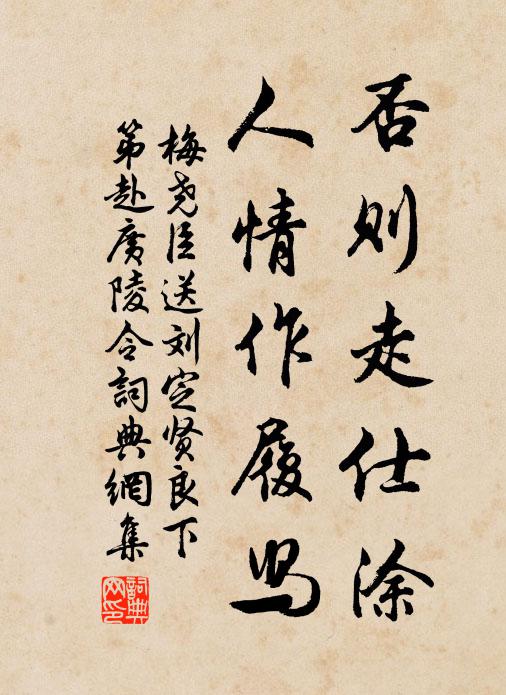 否则走仕涂
人情作履舄
梅尧臣送刘定贤良下
第赴廣陵令詞典網集
詞典网印